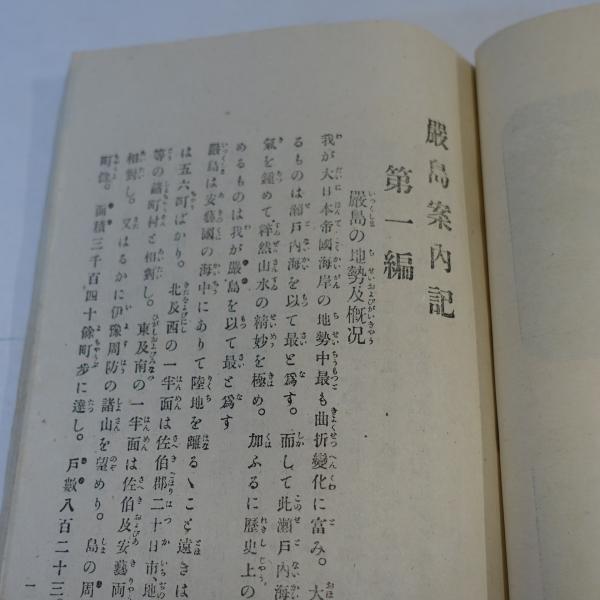 嚴島案內記
第一編
嚴島の地勢及慨況
我が大日本帝國海岸の地勢中最も曲折變化に富み。大
るものは瀨戸內海を以て最と爲す。而して此瀨戸內海
氣を鍾めて粹然山水の精妙を極め。加ふるに歷史上の
めるものは我が嚴島を以て最と爲す
嚴島は安藝國の海中にありて陸地を離るゝこと遠さは
は五六町ばかり。北及西の一半面は佐伯郡二十日市、地
等の諸町村と相對し。東及南の一半面は佐伯及安藝兩
相對し。又はるかに伊豫周防の諸山を望めり。島の周
町餘。面積三千百四十餘町步に達し。戸數八百二十三。
一